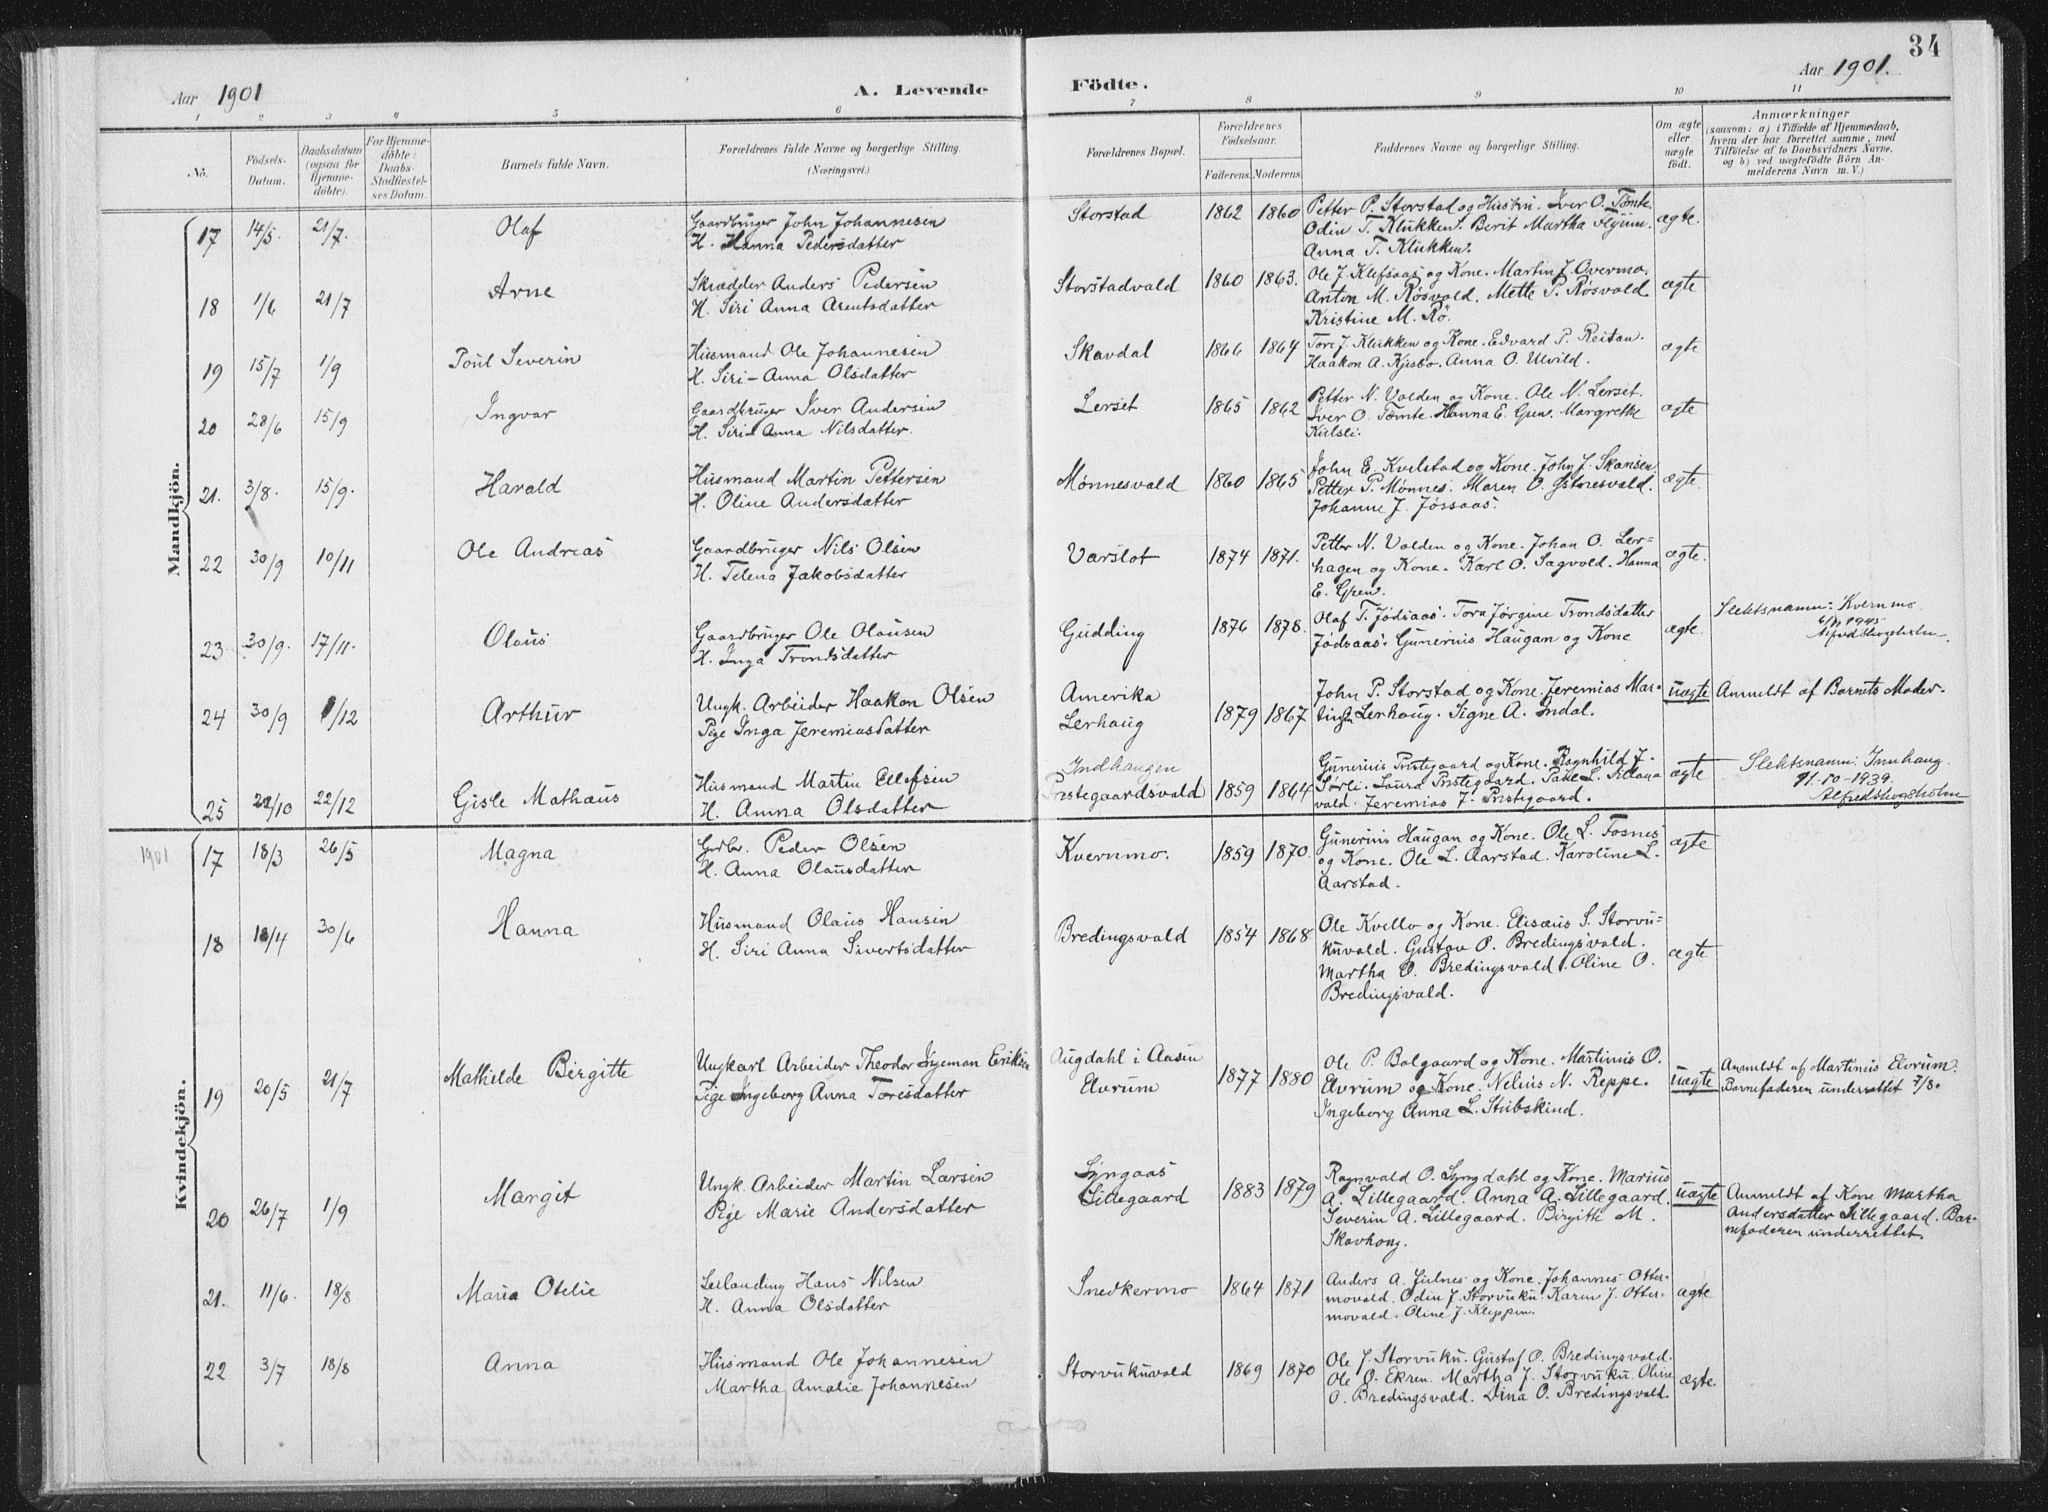 34
Aar 1901
A. Levende
Födte.
Aar 1901.
1 2 3 4 5 6 7 8 9 10 11
No.
Födsels-
Datum.
Daabsdatum
(ogsaa for
Hjemme-
döbte).
For Hjemme-
döbte:
Daabs-
Stadfæstel-
ses Datum.
Barnets fulde Navn.
Forældrenes fulde Navne og borgerlige Stilling.
(Næringsvei.)
Forældrenes Bopæl.
Forældrenes
Födselsaar.
Faderens. Moderens.
Faddernes Navne og borgerlige Stilling.
Om ægte
eller
uægte
födt.
Anmærkninger
(saasom: a) i Tilfælde af Hjemmedaab,
hvem der har forrettet samme, med
Tilföielse af to Daabsvidners Navne,
og b) ved uægtefödte Börn An-
melderens Navn m. V.)
Mandkjön.
17 14/5. 21/7. Olaf
Gaardbruger John Johannesen
H. Hanna Pedersdatter
Storstad 1862 1860
Petter P. Storstad og Hustru. Iver O. Tömte.
Odin T. Klukken. Berit Martha Flyum.
Anna T. Klukken.
ægte.
18 1/6 21/7 Arne
Skrædder Anders Pedersen
H. Siri Anna Arentsdatter
Storstadvald 1860 1863.
Ole J. Klefsaas og Kone. Martin J. Overmo.
Anton M. Røsvald. Mette P. Røsvald.
Kristine M. Rö.
ægte
19 15/7 1/9 Poul Severin
Husmand Ole Johannesen
H. Siri-Anna Olsdatter
Skavdal 1866 1864
Tore J. Klukken og Kone. Edvard P. Reitan.
Haakon A. Kjesbo. Anna O. Ulvild.
ægte
20 28/6 15/9 Ingvar
Gaardbruger Iver Andersen
H. Siri Anna Nilsdatter.
Lerset 1865 1862
Petter N. Volden og Kone. Ole N. Lerset.
Iver O. Tömte. Hanna E. Gren. Margrethe
Kulsli.
ægte
21. 3/8. 15/9. Harald
Husmand Martin Pettersen
H. Oline Andersdatter
Mønnesvald 1860 1865
John E. Kvelstad og Kone. John J. Skansen
Petter P. Mønnes. Maren O. Østnesvald.
Johanne J. Jössaas.
ægte.
22 30/9 10/11 Ole Andreas
Gaardbruger Nils Olsen
H. Telena Jakobsdatter
Varslot 1874 1871.
Petter N. Volden og Kone. Johan O. Ler=
hagen og Kone. Karl O. Sagvold. Hanna
E. Gren.
ægte.
23 30/9. 17/11. Olaus
Gaardbruger Ole Olausen
H. Inga Trondsdatter
Gudding 1876 1878.
Olaf T. Jödsaas. Tora Jørgine Trondsdatter
Jödsaas. Gunerius Haugan og Kone
ægte.
Slektsnamn: Kvernmo
1945
Alfred Skogsholm.
24 30/9 1/12 Arthur
Ungk. Arbeider Haakon Olsen
Pige Inga Jeremiasdatter
Amerika
Lerhaug
1879 1867
John P. Storstad og Kone. Jeremias Mar-
tinsen Lerhaug. Signe A. Indal.
uægte
Anmeldt af Barnets Moder.
25 22/10 22/12 Gisle Mathæus
Husmand Martin Ellefsen
H. Anna Olsdatter
Indhaugen
Prstegaardsvald 1859 1864
Gunerius Prstegaard og Kone. Ragnhild J.
Sörli. Laura Prstegaard.
vald. Jeremias J. Prstegaard.
ægte
Slektsnamn: Innhaug.
11-10-1939.
Alfred Skogsholm
Kvindekjön.
1901
17 18/3 26/5 Magna
Grbr. Peder Olsen
H. Anna Olausdatter
Kvernmo. 1859 1870.
Gunerius Haugan og Kone. Ole L. Fosnes
og Kone. Ole L. Aarstad. Karoline L.
Aarstad.
ægte
18 18/4 30/6 Hanna
Husmand Olaus Hansen
H. Siri Anna Sivertsdatter
Bredingsvald 1854 1868
Ole Kvello og Kone. Elisæus S. Storvu=
kuvald. Gustav O. Bredingsvald.
Martha O. Bredingsvald. Oline O.
Bredingsvald.
ægte
19 20/5 21/7 Mathilde Birgitte
Ungkarl Arbeider Theodor Ingeman Eriksen
Pige Ingeborg Anna Toresdatter
Augdahl i Aasen
Elvrum
1877 1880
Ole P. Balgaard og Kone. Martinus O.
Elvrum og Kone. Nelius N. Reppe.
Ingeborg Anna L. Stubskind.
uægte
Anmeldt af Martinus Elvrum.
Barnefaderen underrettet 7/8.
20 26/7 1/9 Margit
Ungk. Arbeider Martin Larsen
Pige Marie Andersdatter
Lyngaas
Lillegaard
1883 1879
Ragnvald O. Lyngdahl og Kone. Marius
A. Lillegaard. Anna A. Lillegaard.
Severin A. Lillegaard. Birgitte M.
Skavhaug.
uægte
Anmeldt af Kone Martha
Andersdatter Lillegaard. Bar-
nefaderen underrettet.
21. 11/6. 18/8 Maria Otelie
Leilænding Hans Nilsen
H. Anna Olsdatter
Snedkermo 1864 1871
Anders A. Julnes og Kone. Johannes Otter-
movald. Odin J. Storvuku. Karen J. Otter-
movald. Oline J. Kleppen.
ægte
22 3/7 18/8 Anna
Husmand Ole Johannesen
Martha Amalie Johannesen
Storvukuvald 1869 1870
Ole J. Storvuku. Gustaf O. Bredingsvald.
Ole O. Ekren. Martha J. Storvuku. Oline
O. Bredingsvald. Dina O. Bredingsvald.
ægte.